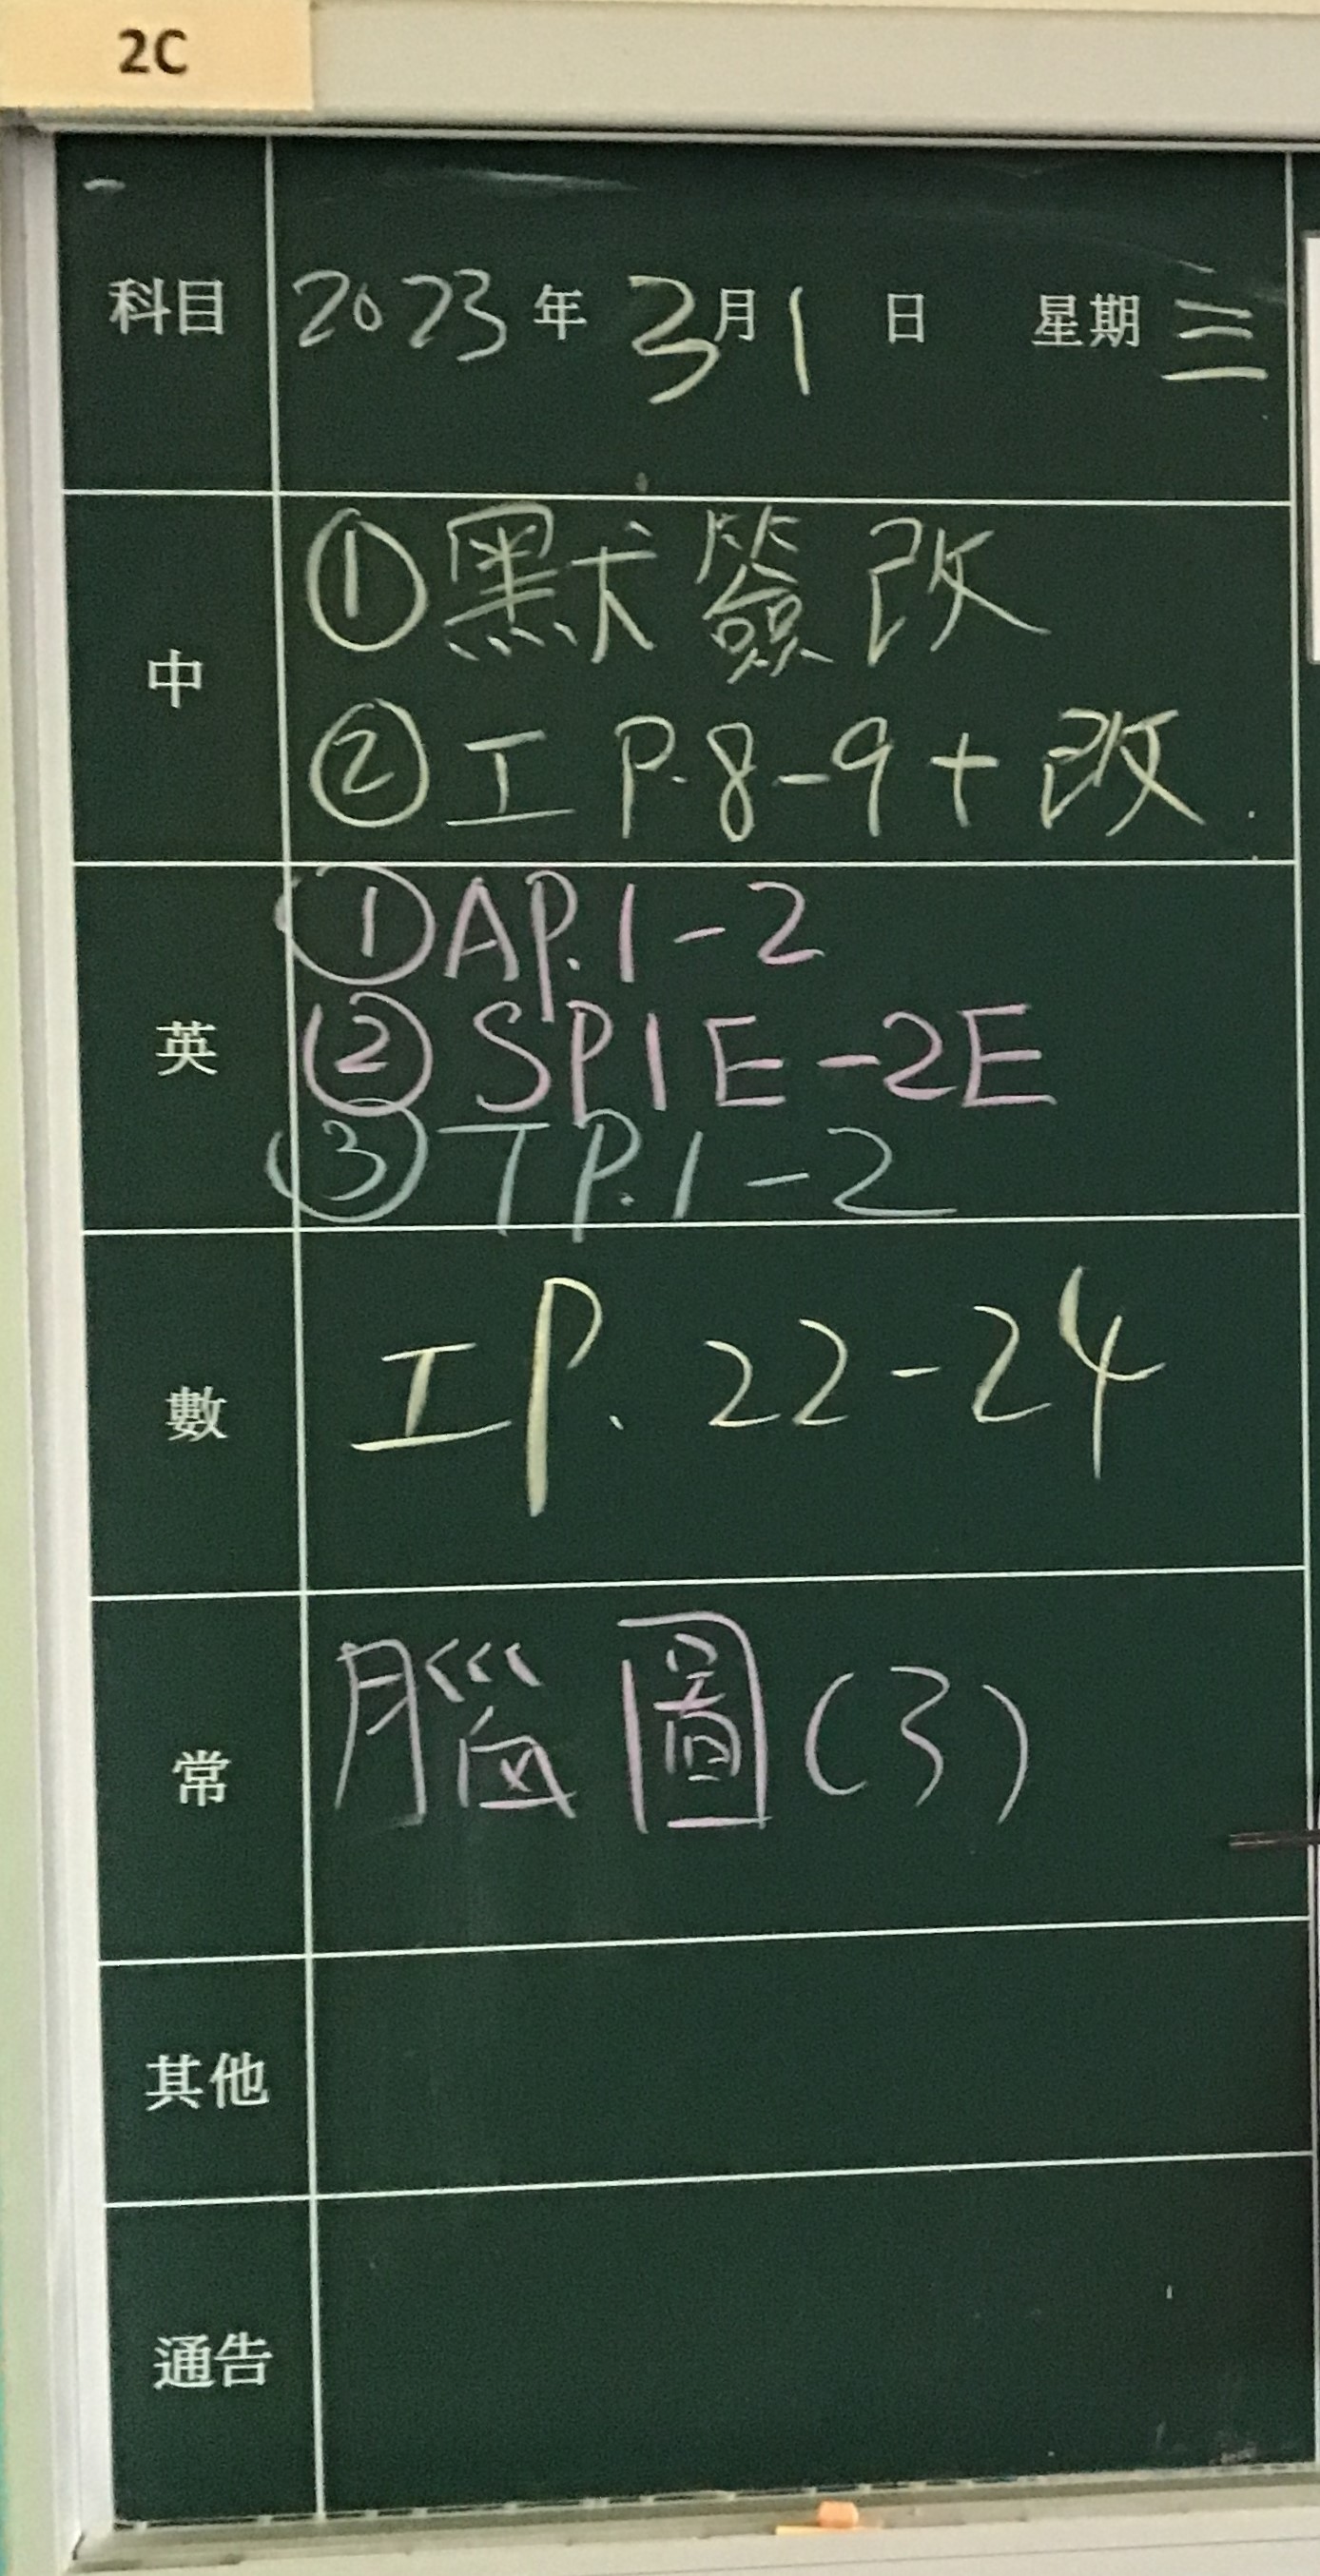 2C
科目 2023年3月1日 星期三
中
①默簽改
②工 P.8-9+改
英
①AP.1-2
②SP1E-2E
③TP.1-2
數 工P.22-24
常 腦圖(3)
其他
通告